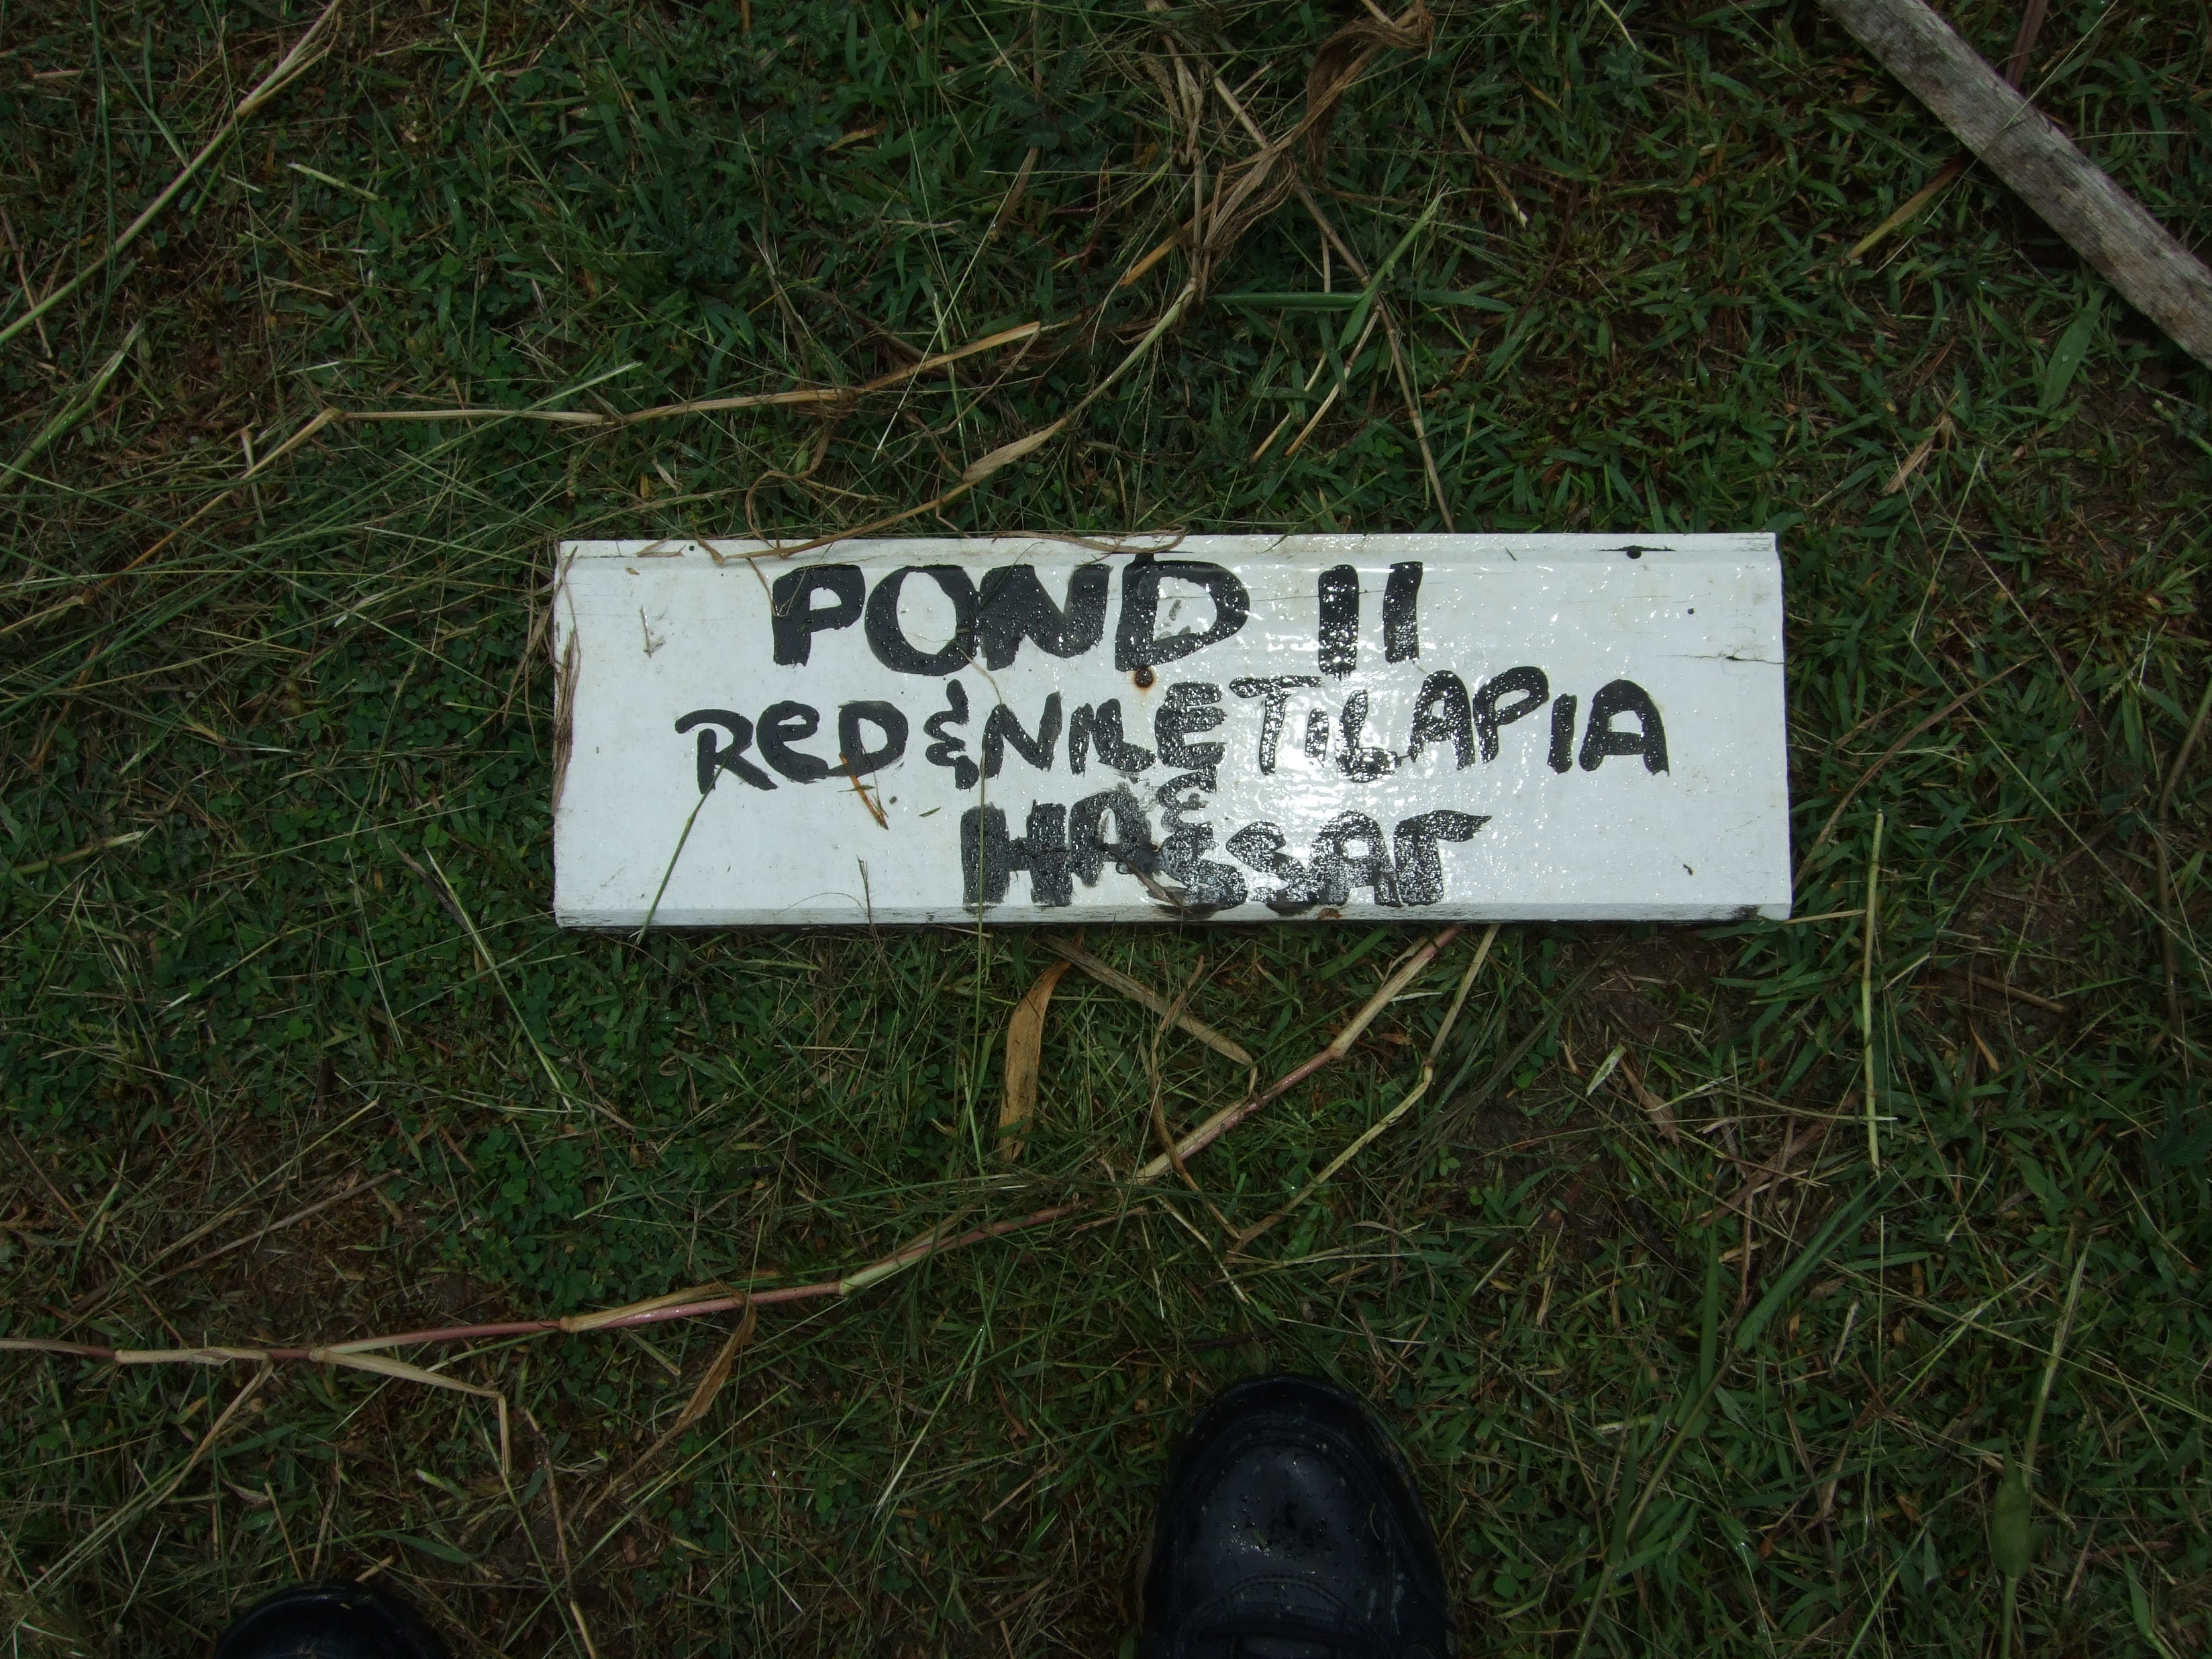 POND 11
ReD & NILE TILAPIA
&
HASSAR